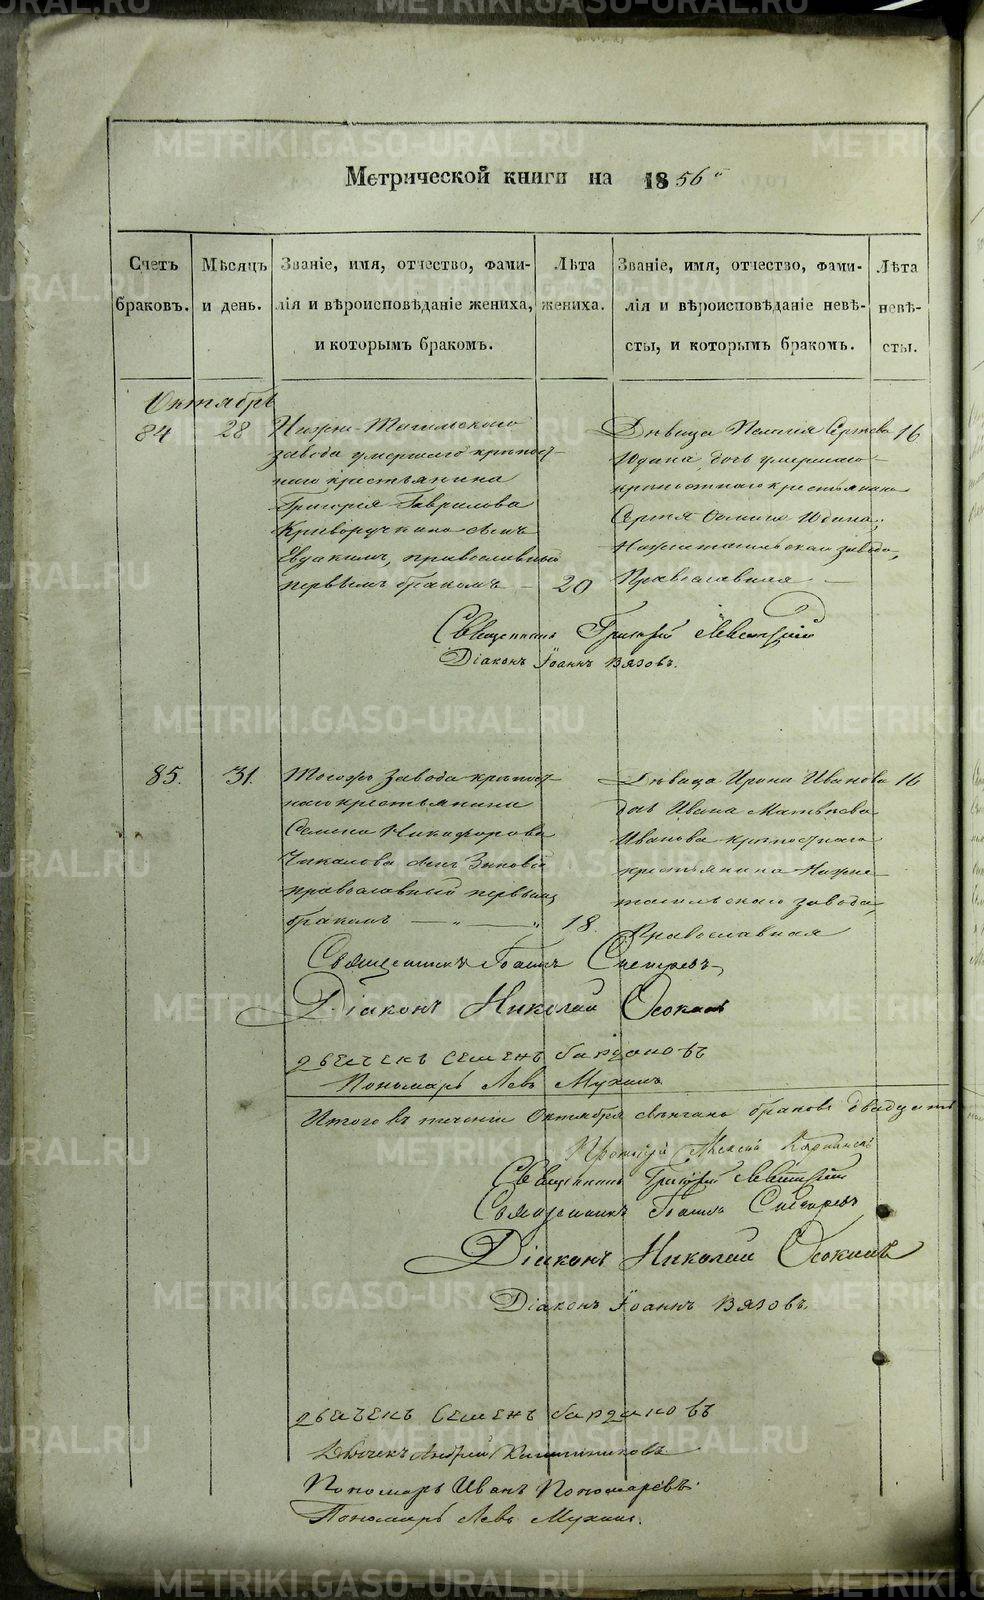 Метрической книги на 1856й
Счетъ браковъ.
Мѣсяцъ и день.
Званіе, имя, отчество, фами-
лія и вѣроисповѣданіе жениха,
и которымъ бракомъ.
Лѣта жениха.
Званіе, имя, отчество, фами-
лія и вѣроисповѣданіе невѣ-
сты, и которымъ бракомъ.
Лѣта невѣ-
сты.
Октябрь
84
28
Нижне-Тагильскаго
завода умершаго крѣпост-
наго крестьянина
Григорія Гаврилова
Криворучкина сынъ
Евдакимъ, православный
первымъ бракомъ
20
Дѣвица Пелагія Сергѣева
Юдина, дочь умершаго
крѣпостнаго крестьянина
Сергѣя Юдина,
Нижнетагильскаго завода,
Православная
16
Священникъ Григорій
Діаконъ Іоаннъ Вязовъ.
85.
31.
Тогожъ завода крѣпост-
наго крестьянина
Семена Никифорова
сынъ Зиновій
православный первымъ
бракомъ — „ — „
18.
Дѣвица Ирина Иванова
дочь Ивана Матвѣева
Иванова крѣпостнаго
крестьянина Нижне-
тагильскаго завода,
Православная
16
Священникъ Іоаннъ Снегиревъ
Діаконъ Николай Осокинъ
Семенъ
Пономарь Левъ Мухинъ
Итого въ теченіи Октября вѣнчано браковъ двадцать
Протоіерей Алексѣй
Священникъ Григорій
Священникъ Іоаннъ Снегиревъ
Діаконъ Николай Осокинъ
Діаконъ Іоаннъ Вязовъ.
Семенъ
Дьячекъ Андрей
Пономарь Иванъ Пономаревъ.
Пономарь Левъ Мухинъ.
METRIKI.GASO-URAL.RU